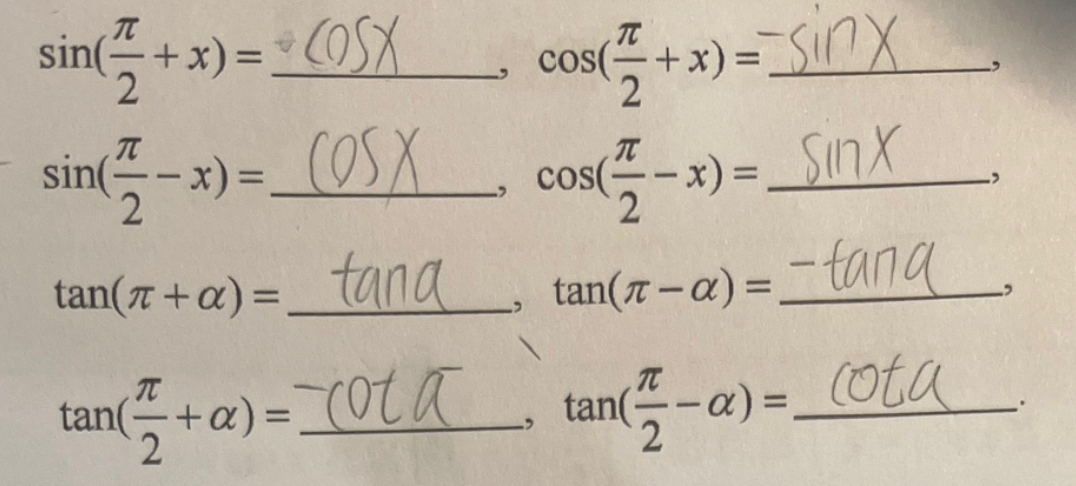 sin(π/2 + x) = cosx, cos(π/2 + x) = -sinx,
sin(π/2 - x) = cosx, cos(π/2 - x) = sinx,
tan(π + α) = tanα, tan(π - α) = -tanα,
tan(π/2 + α) = -cotα, tan(π/2 - α) = cotα.